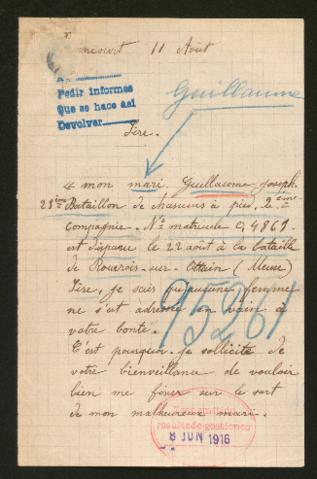 11 Août
Pedir informes
Que se hace así
Devolver
Guillaume
Sire.
« mon mari, Guillaume Joseph
Bataillon de chasseurs à pied, 2 ème
Compagnie. No matricule 4869
est disparu le 22 août à la bataille
de sur Ottain (Meuse)
Sire, je sais qu'aucune femme
ne s'est adressée en vain à
votre bonté.
C'est pourquoi je sollicite de
votre bienveillance de vouloir
bien me fixer sur le sort
de mon malheureux mari.
95261
8 JUN 1916